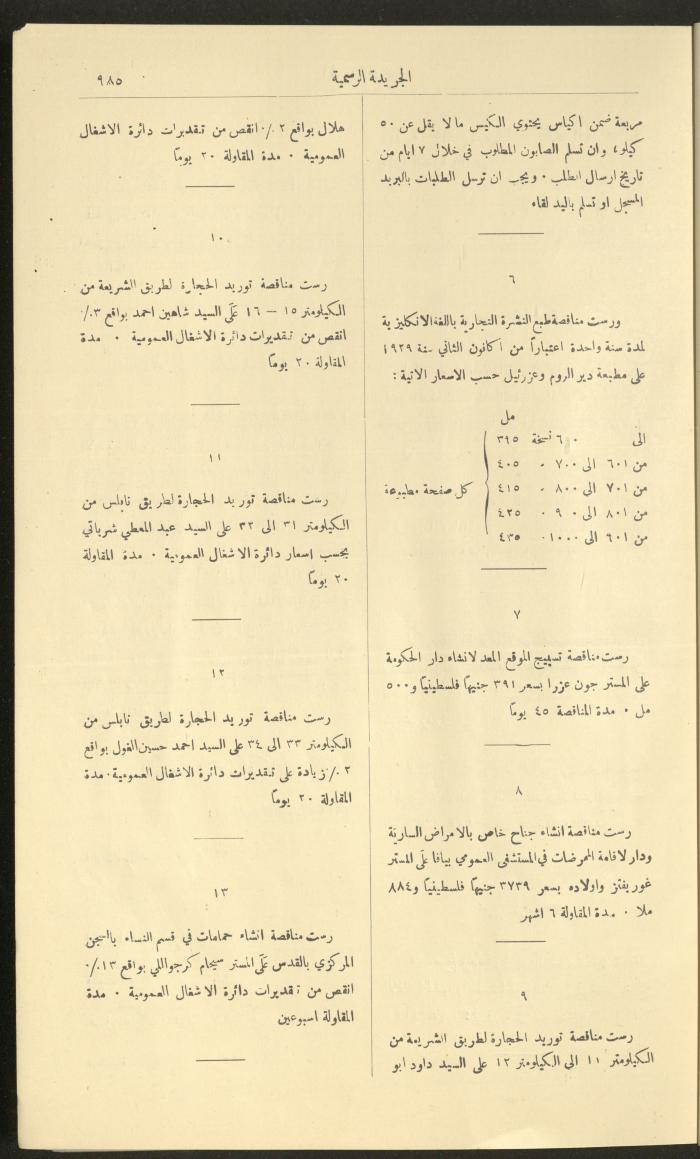 الجريدة الرسمية
٩٨٥
مربعة ضمن اكياس يحتوي الكيس ما لا يقل عن ٥٠
كيلو، وان تسلم الصابون المطلوب في خلال ٧ ايام من
تاريخ ارسال الطلب ٠ ويجب ان ترسل الطلبات بالبريد
المسجل او تسلم باليد لقاء
٦
ورست مناقصة طبع النشرة التجارية باللغة الانكليزية
لمدة سنة واحدة اعتباراً من اكانون الثاني سنة ١٩٢٩
على مطبعة دير الروم وعزرئيل حسب الاسعار الاتية :
مل
الى ٦٠٠ نسخة ٣٩٥
من ٦٠١ الى ٧٠٠ ٠ ٤٠٥
من ٧٠١ الى ٨٠٠ ٠ ٤١٥ كل صفحة مطبوعة
من ٨٠١ الى ٩٠٠ ٠ ٤٢٥
من ٦٠١ الى ١٠٠٠ ٠ ٤٣٥
٧
رست مناقصة تسييج الموقع المعد لانشاء دار الحكومة
على المستر جون عزرا بسعر ٣٩١ جنيهاً فلسطينياً و ٥٠٠
مل ٠ مدة المناقصة ٤٥ يوماً
٨
رست مناقصة انشاء جناح خاص بالامراض السارية
ودار لاقامة الممرضات في المستشفى العمومي بيافا على المستر
غوريفتز واولاده بسعر ٣٧٣٩ جنيهاً فلسطينياً و ٨٨٤
ملا ٠ مدة المقاولة ٦ اشهر
٩
رست مناقصة توريد الحجارة لطريق الشريعة من
الكيلومتر ١١ الى الكيلومتر ١٢ على السيد داود ابو
هلال بواقع ٢ ٪ انقص من تقديرات دائرة الاشغال
العمومية ٠ مدة المقاولة ٣٠ يوماً
١٠
رست مناقصة توريد الحجارة لطريق الشريعة من
الكيلومتر ١٥ – ١٦ على السيد شاهين احمد بواقع ٣٪
انقص من تقديرات دائرة الاشغال العمومية ٠ مدة
المقاولة ٣٠ يوماً
١١
رست مناقصة توريد الحجارة لطريق نابلس من
الكيلومتر ٣١ الى ٣٢ على السيد عبد المعطي شرباتي
بحسب اسعار دائرة الاشغال العمومية ٠ مدة المقاولة
٣٠ يوماً
١٢
رست مناقصة توريد الحجارة لطريق نابلس من
الكيلومتر ٣٣ الى ٣٤ على السيد احمد حسين الغول بواقع
٢ ٪ زيادة على تقديرات دائرة الاشغال العمومية ٠ مدة
المقاولة ٣٠ يوماً
١٣
رست مناقصة انشاء حمامات في قسم النساء بالسجن
المركزي بالقدس على المستر سيجام كرجواللي بواقع ١٣٪
انقص من تقديرات دائرة الاشغال العمومية ٠ مدة
المقاولة اسبوعين